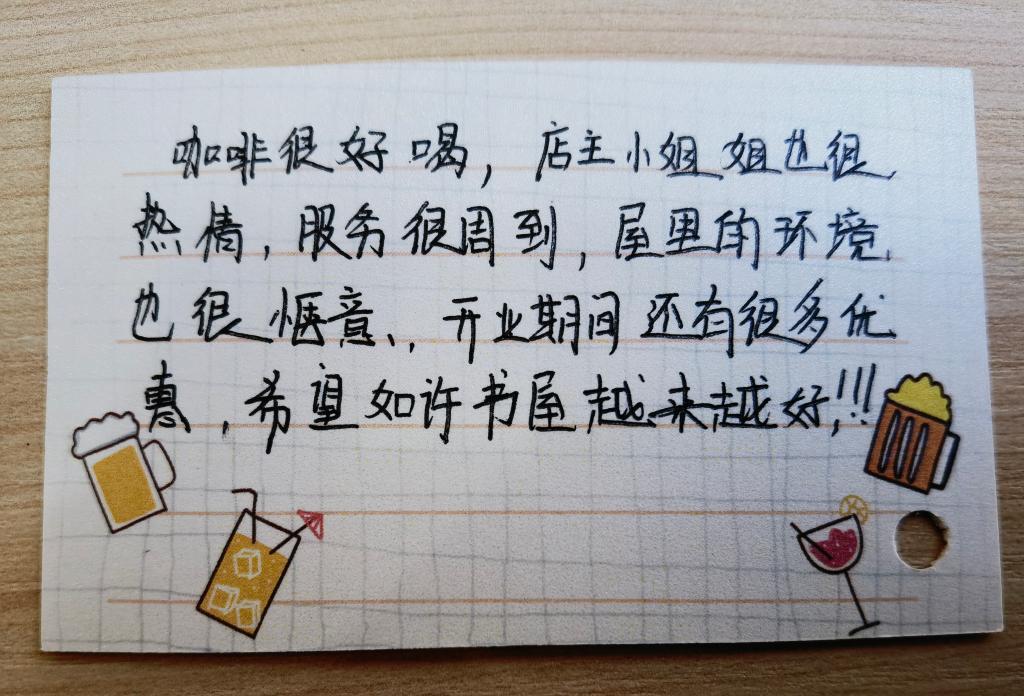 咖啡很好喝，店主小姐姐也很
热情，服务很周到，屋里的环境
也很惬意，开业期间还有很多优
惠，希望如许书屋越来越好！！！